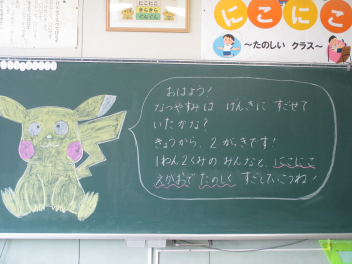 にこにこ
きらきら
ぐんぐん
にこにこ
～たのしい クラス～
おはよう!
なつやすみは げんきに すごせて
いたかな?
きょうから、2がっきです!
1ねん2くみの みんなと、にこにこ
えがおで たのしく すごしていこうね!